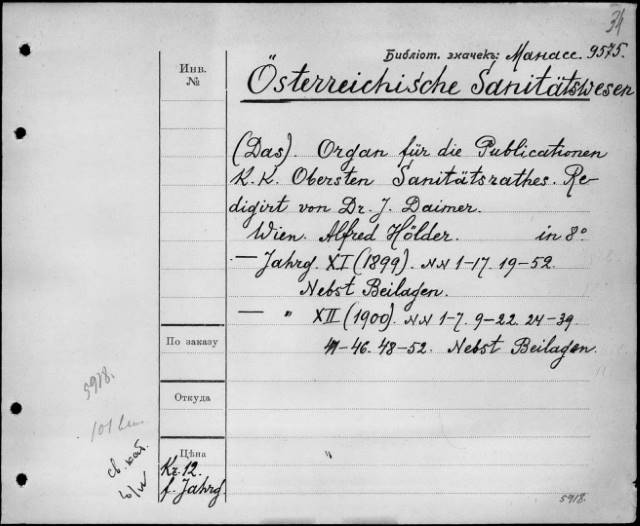 34
Библіот. значекъ: Манасс. 9575.
Инв.
№
Österreichische Sanitätswesen
(Das). Organ für die Publicationen
K. K. Obersten Sanitätsrathes. Re-
digirt von Dr. J. Daimer.
Wien. Alfred Hölder. in 8°
— Jahrg. XI (1899). NN 1-17. 19-52.
Nebst Beilagen.
— " XII (1900). NN 1-7. 9-22. 24-39.
41-46. 48-52. Nebst Beilagen.
По заказу
5918.
Откуда
св. кат.
Цѣна
"
Kr. 12.
f. Jahrg.
5918.